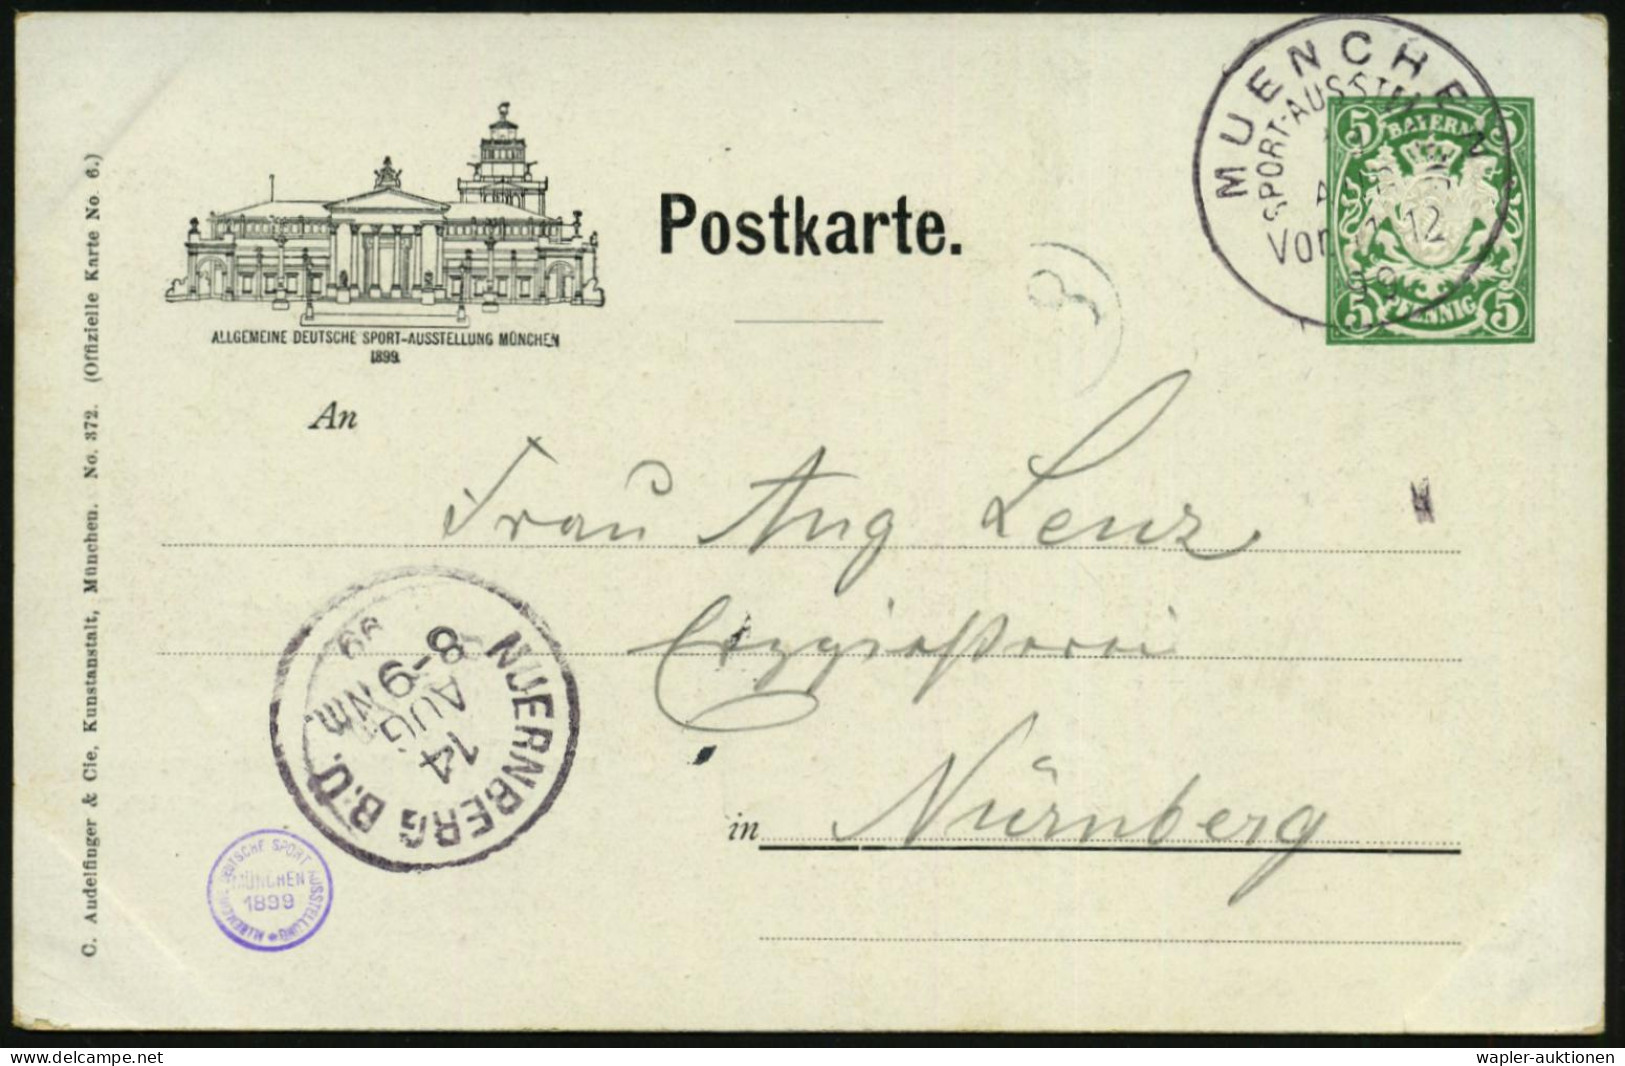 MUENCHEN
SPORT-AUSST
Vor 11-12
99
5 BAYERN 5
5 PFENNIG 5
Postkarte.
ALLGEMEINE DEUTSCHE SPORT-AUSSTELLUNG MÜNCHEN
1899.
C. Audelfinger & Cie, Kunstanstalt, München. No. 372. (Offizielle Karte No. 6.)
An
Frau Aug Lenz
in Nürnberg
NUERNBERG B.O.
14
AUG
8-9 Nm.
99
ALLGEMEINE DEUTSCHE SPORT AUSSTELLUNG
MÜNCHEN
1899
wapler-auktionen